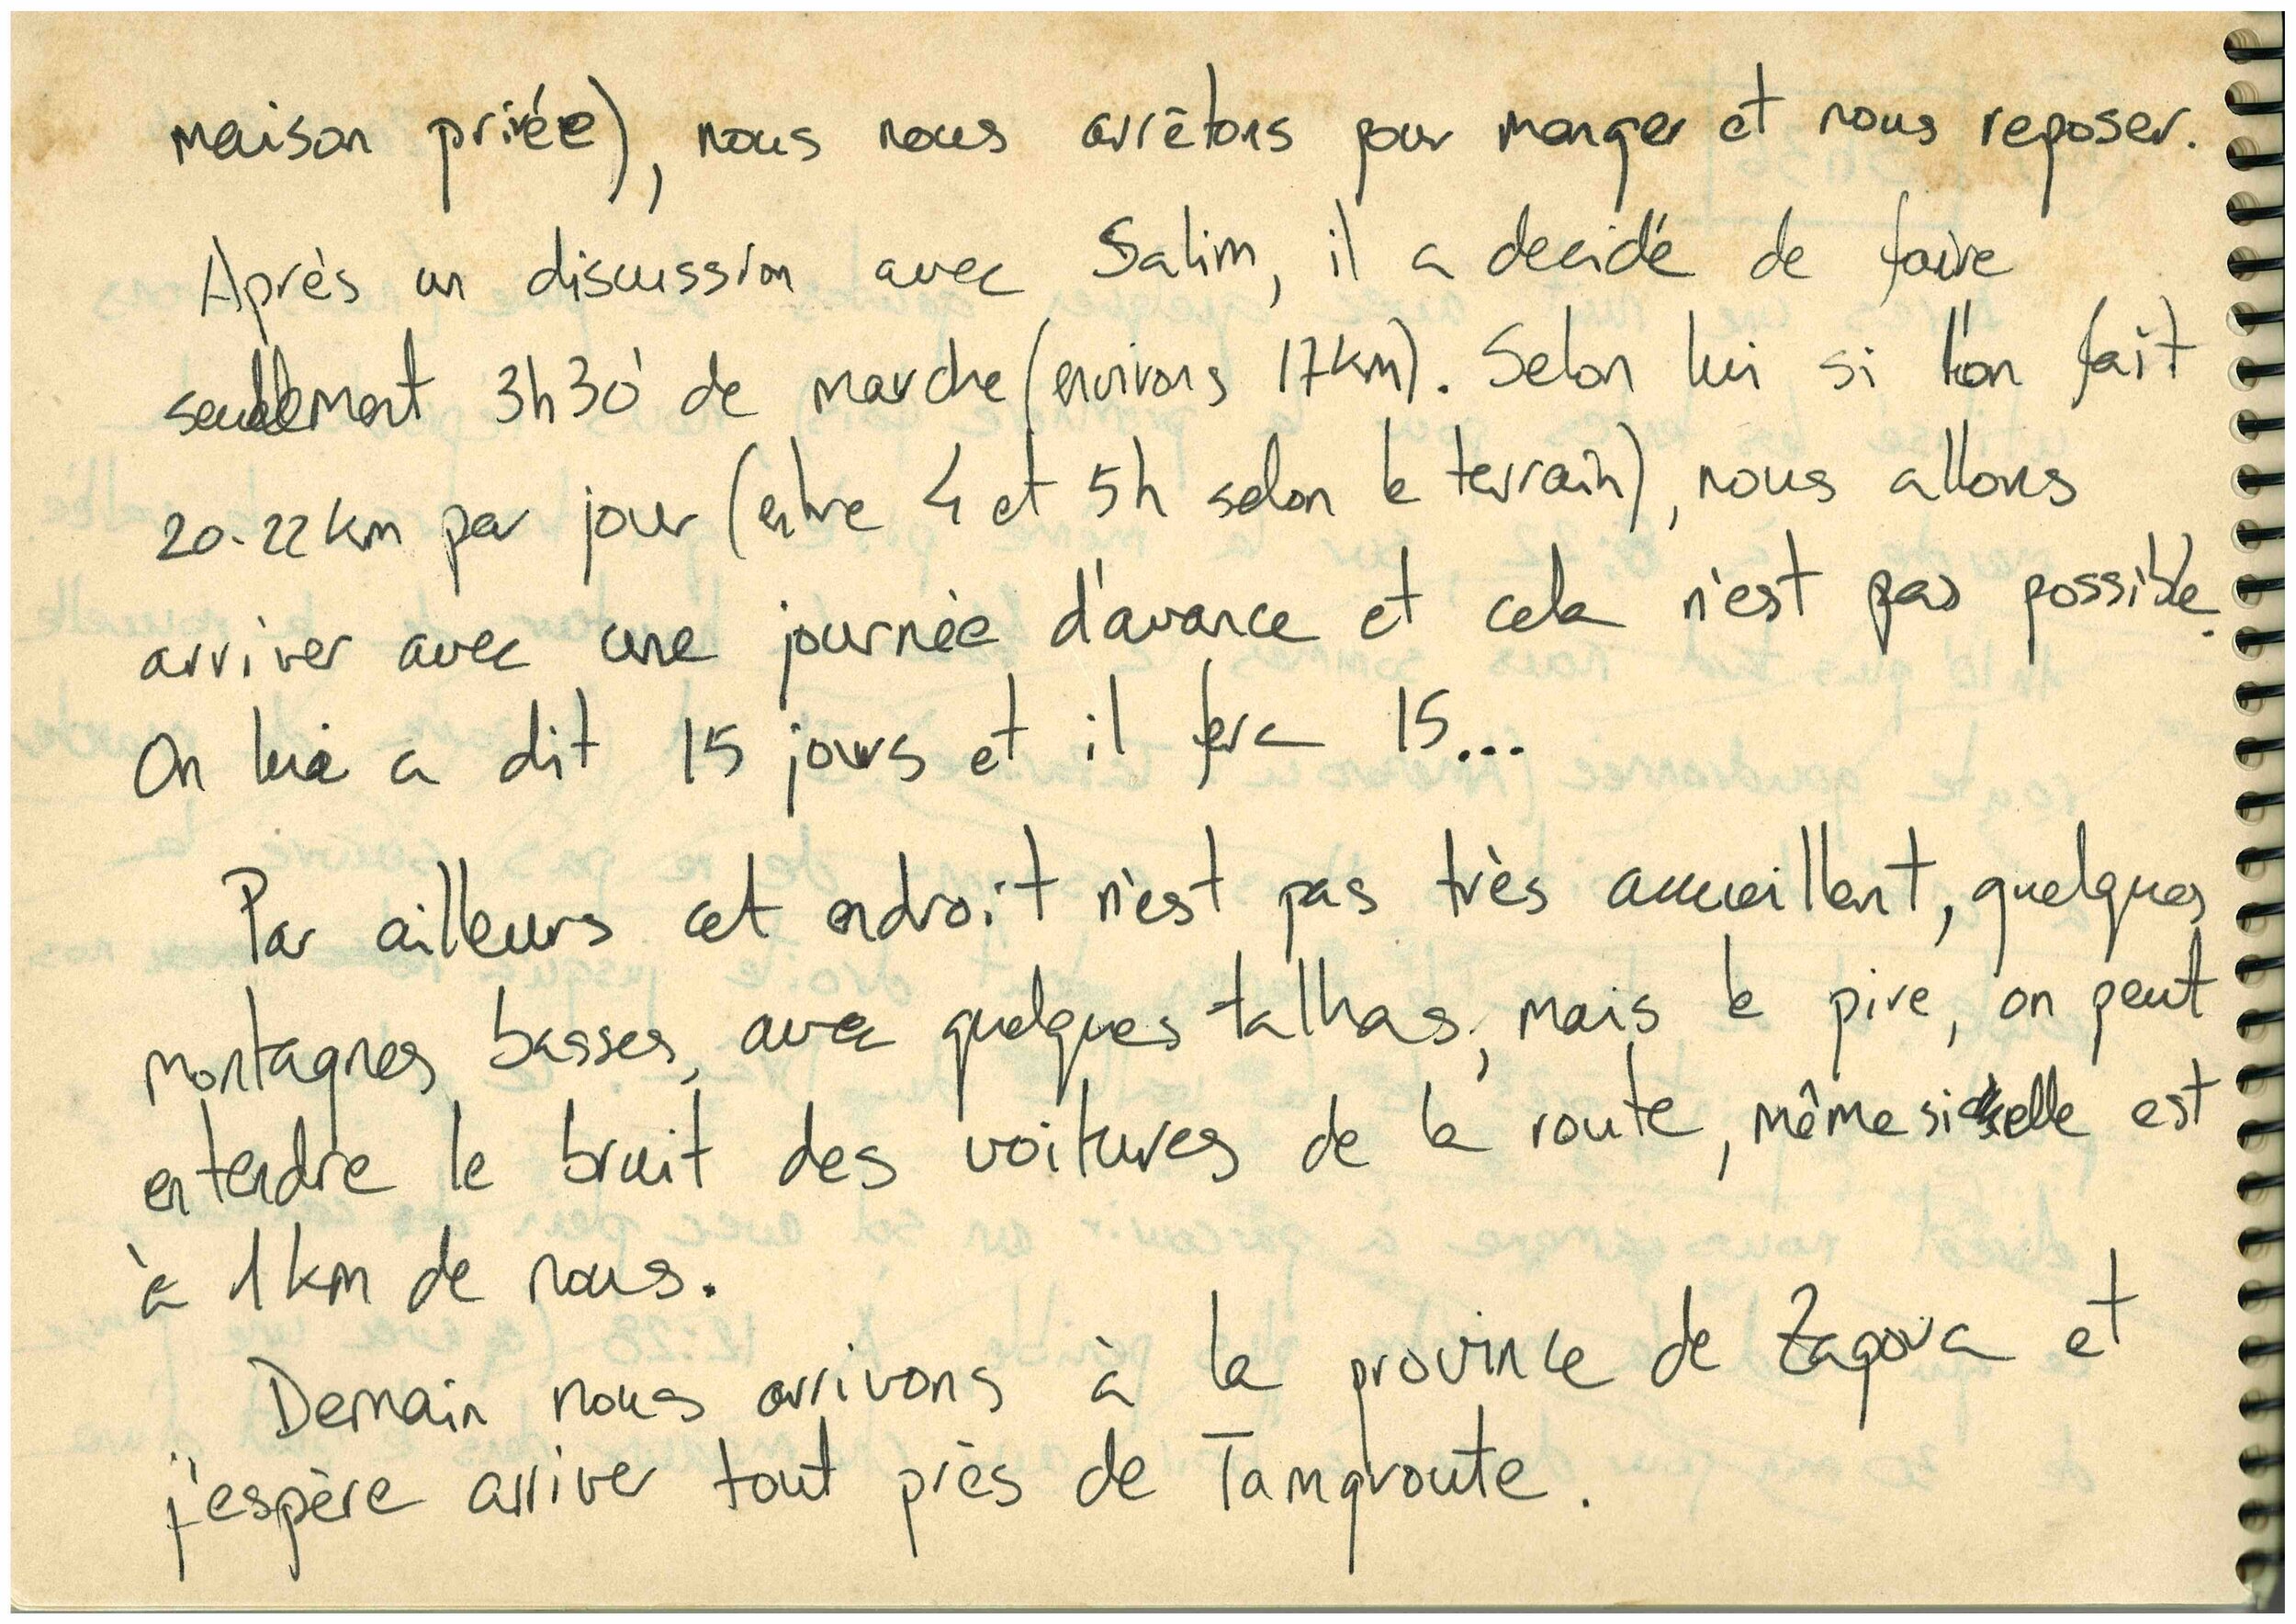 maison privée), nous nous arrêtons pour manger et nous reposer.
Après un discussion avec Salim, il a decidé de faire
seulement 3h30' de marche (environs 17km). Selon lui si l'on fait
20-22 km par jour (entre 4 et 5h selon le terrain), nous allons
arriver avec une journée d'avance et cela n'est pas possible.
On lui a dit 15 jours et il fera 15...
Par ailleurs cet endroit n'est pas très accueillant, quelques
montagnes basses, avec quelques talhas, mais le pire, on peut
entendre le bruit des voitures de la route, même si elle est
à 1km de nous.
Demain nous arrivons à la province de Zagora et
j'espère arriver tout près de Tamgroute.